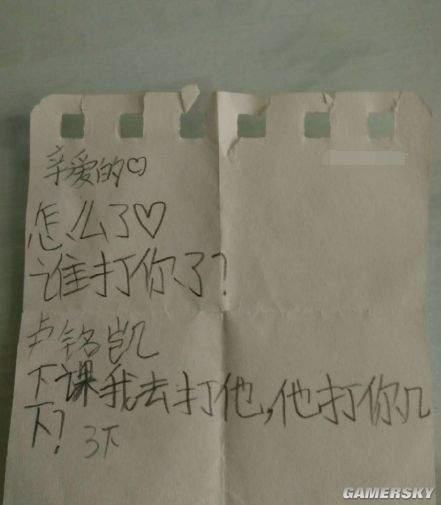 亲爱的♡
怎么了♡
谁打你了?
卢铭凯
下课我去打他,他打你几
下? 3下
GAMERSKY